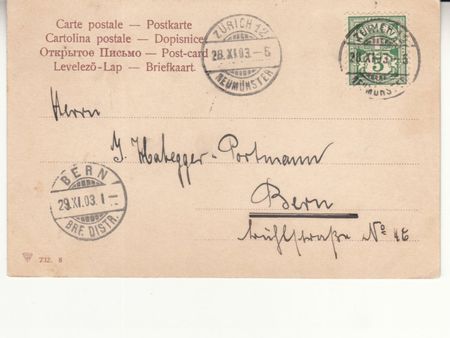 Carte postale — Postkarte
Cartolina postale — Dopisnice
Открытое Письмо — Post-card
Levelező-Lap — Briefkaart
ZÜRICH 12
28.XI.03.–5
NEUMÜNSTER
28.XI.
NEUMÜNSTER
5
Herrn
J. Habegger-Portmann
Bern
No 46
BERN
29.XI.03. 1
BRF. DISTR.
732. 8